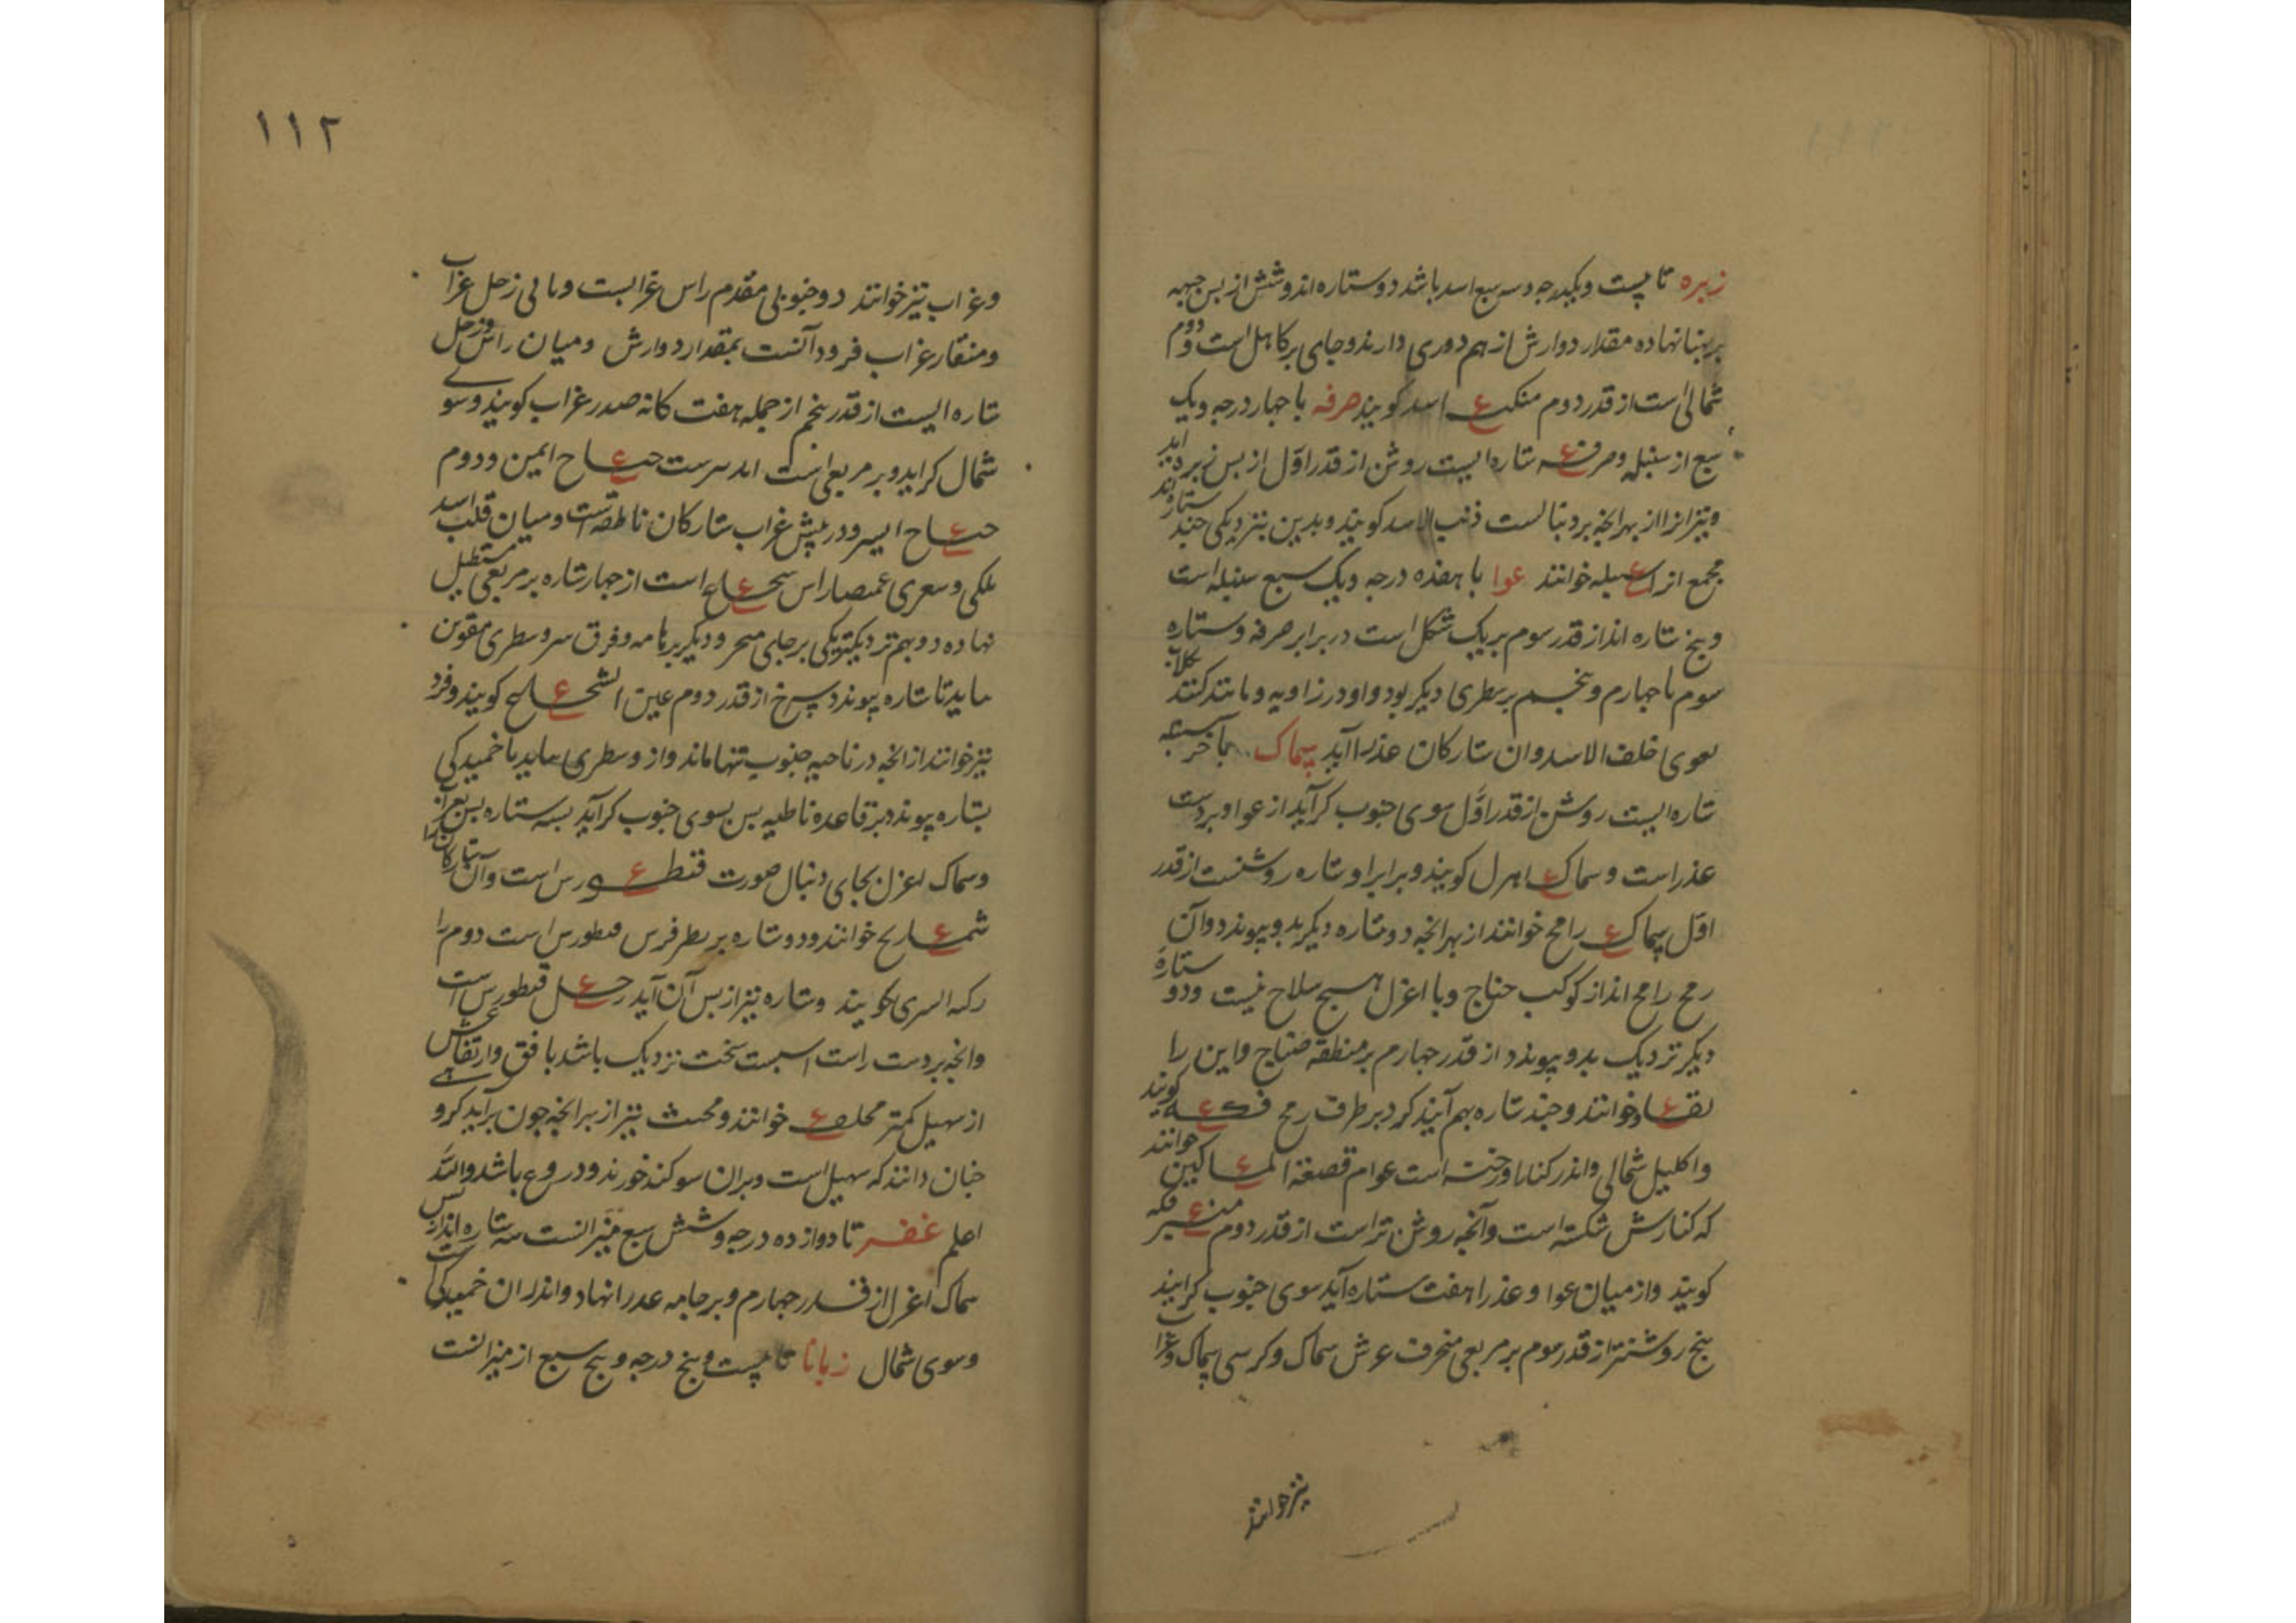 زبره تا بیست ویکدرجه وسه سبع اسد باشد دو ستاره اند روشن از پس جبهه
بر پهنا نهاده مقدار دوارش از هم دوری دارند و جای بر کاهل است دوم
شمالی است از قدر دوم منکب اسد کویند صرفه با چهار درجه ویک
سبع از سنبله وصرفه ستاره ایست روشن از قدر اول از پس زبره آید
ونیز انرا از بهر انچه بر دنبالست ذنب الاسد کویند وبدین نزدیکی چند ستاره اند
مجمع انرا سنبله خوانند عوا با هفده درجه ویک سبع سنبله است
وپنج ستاره اند از قدر سوم بر یک شکل است در برابر صرفه وستاره
سوم با چهارم وپنجم بر سطری دیکر بود واو در زاویه ومانند کنند کلاب
عوی خلف الاسد وان ستارکان عذرا آید سماک بآخر سنبله
ستاره ایست روشن از قدر اول سوی جنوب کراید از عوا وبر دست
عذراست وسماک اعزل کویند وبرابر او ستاره روشنست از قدر
اول سماک رامح خوانند از بهر انچه دو ستاره دیکر بدو پیوندد وآن
رمح رامح اند از کوکب ... وبا اعزل هیچ سلاح نیست ودو ستاره
دیکر نزدیک بدو پیوندد از قدر چهارم بر منطقه ... واین را
... خوانند وچند ستاره بهم آیند کرد بر طرف رمح فکه کویند
واکلیل شمالی واندر کنار او رخنه است عوام قصعة المساکین خوانند
که کنارش شکسته است وآنچه روشن تر است از قدر دوم منیر فکه
کویند واز میان عوا وعذرا هفت ستاره آید سوی جنوب کرایند
پنج روشنتر از قدر سوم بر مربعی منحرف عرش سماک وکرسی سماک
نیز خوانند
١١٢
وغراب نیز خوانند دو جنوبی مقدم راس غرابست ... رجل غراب
ومنقار غراب فرود آنست بمقدار دوارش ومیان راس ورجل
ستاره ایست از قدر پنجم از جمله هفت کانه صدر غراب کویند وسوی
شمال کراید وبر مربعی است ... جناح ایمن ودوم
جناح ایسر ودر پیش غراب ستارکان باطیه است ومیان قلب اسد
ملکی وشعری غمیصا راس شجاع است از چهار ستاره بر مربعی مستطیل
نهاده دو بهم نزدیکتر یکی بر جای منخر ودیکر بر ... وفرق سر وسطری مقوس
بیاید تا ستاره پیوندد سرخ از قدر دوم عین الشجاع کویند وفرد
نیز خوانند از انچه در ناحیه جنوب تنها ماند واز وسطری بیاید با خمیدکی
بستاره پیوندد بر قاعده باطیه پس بسوی جنوب کراید بسه ستاره پس غراب
وسماک اعزل بجای دنبال صورت قنطورس است وآن ستارکانرا
شماریخ خوانند ودو ستاره بر بطر فرس قنطورس است دوم را
رکبه الیسری کویند وستاره نیز از پس آن آید رجل قنطورس است
وانچه بر دست راست است سخت نزدیک باشد با افق وارتفاعش
از سهیل کمتر محلف خوانند ومحنث نیز از بهر انچه چون برآید کروهی
چنان دانند که سهیل است وبران سوکند خورند ودروغ باشد والله
اعلم غفر تا دوازده درجه وشش سبع میزانست سه ستاره اند از پس
سماک اعزل از قدر چهارم وبر جامه عذرا نهاد واندران خمیدکی است
وسوی شمال زبانا تا بیست وپنج درجه وپنج سبع از میزانست